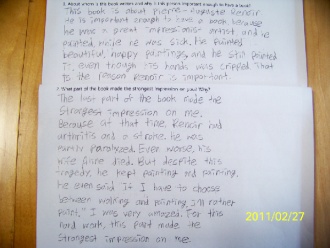 1. About whom is the book written and why is this person important enough to have a book?
This book is about Pierre-Auguste Renoir
He is important enough to have a book because
he was a great impressionist artist and he
painted, while he was sick. He painted
beautiful, happy paintings, and he still painted
it, even though his hands was cripped. That
is the reason Renoir is important.
2. What part of the book made the strongest impression on you? Why?
The last part of the book made the
strongest impression on me.
Because at that time, Renoir had
arthritis and a stroke. He was
partly paralyzed. Even worse, his
wife Aline died. But despite this
tragedy, he kept painting and painting.
he even said "If I have to choose
between walking and painting, I'll rather
paint." I was very amazed. For this
hard work, this part made the
strongest impression on me.
2011/02/27